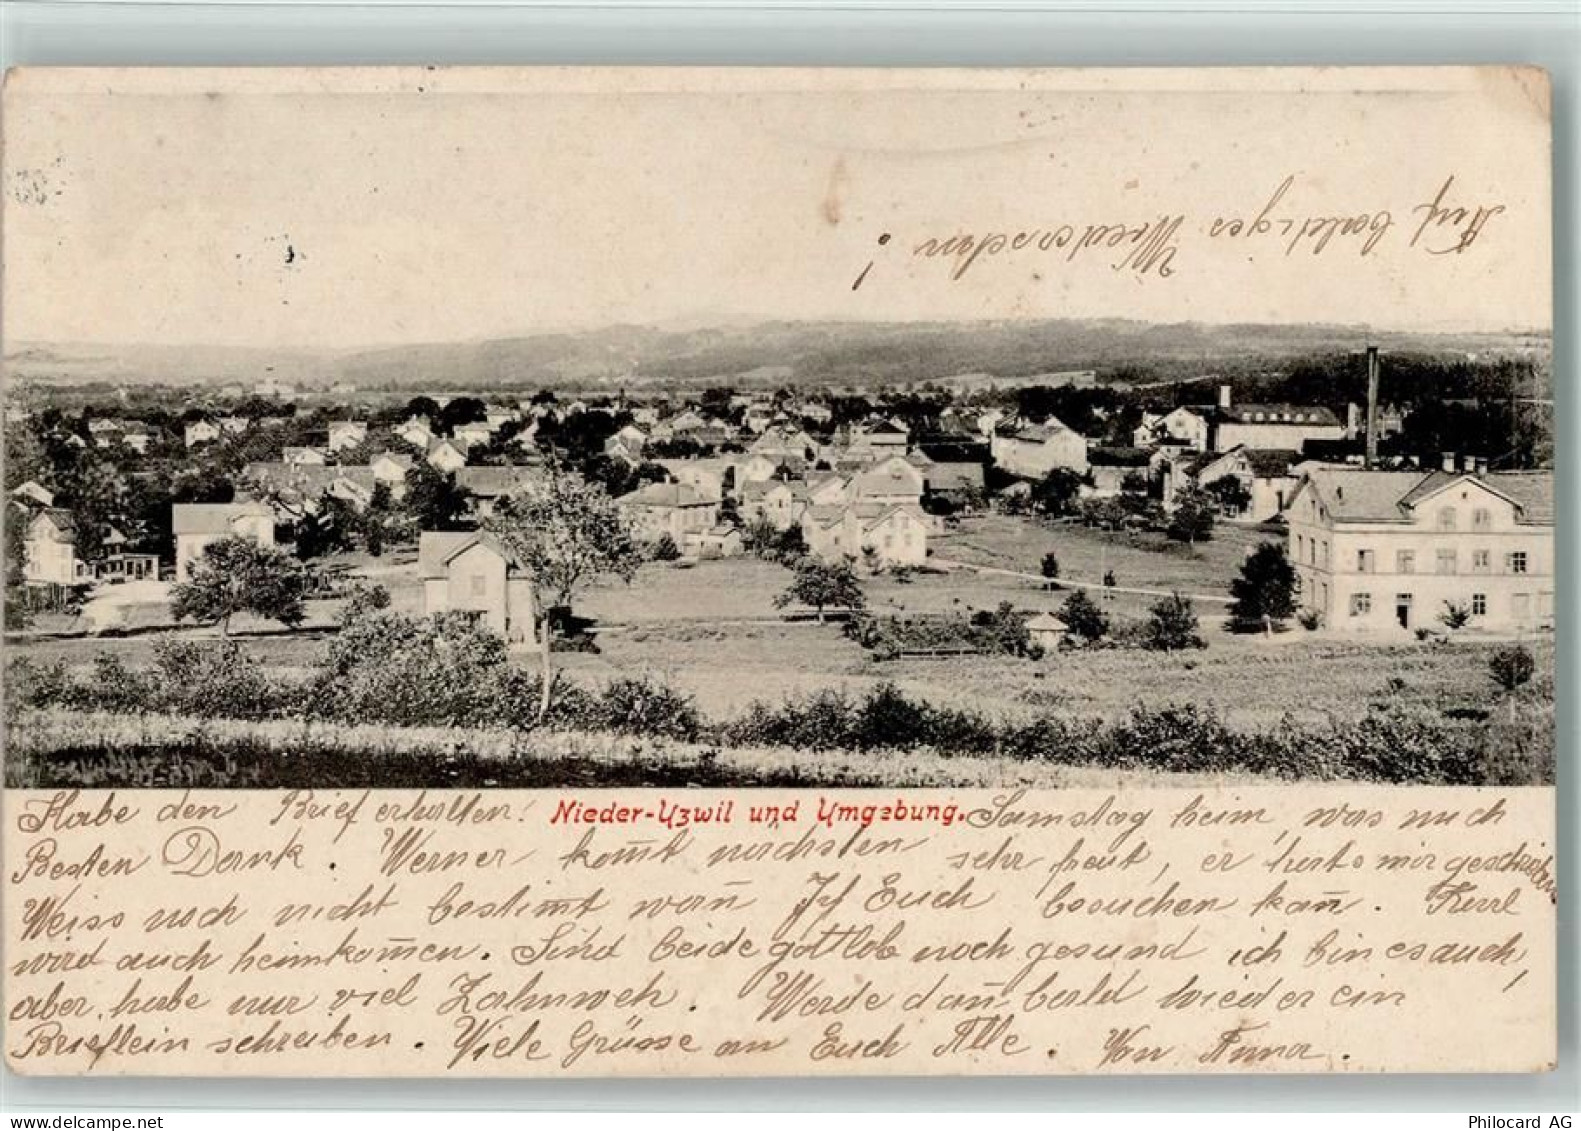 Auf baldiges Wiedersehn !
Habe den Brief erhalten! Nieder-Uzwil und Umgebung. Samstag heim, was mich
Besten Dank. Werner kom̄t nächsten sehr freut, er hate mir geschrieben
Weiss noch nicht bestim̄t wan̄ If Euch besuchen kan̄. Karl
wird auch heimkom̄en. Sind beide gottlob noch gesund ich bin es auch,
aber habe nur viel Zahnweh. Werde dan̄ bald wieder ein
Brieflein schreiben. Viele Grüsse an Euch Alle. Von Anna.
Philocard AG
www.delcampe.net